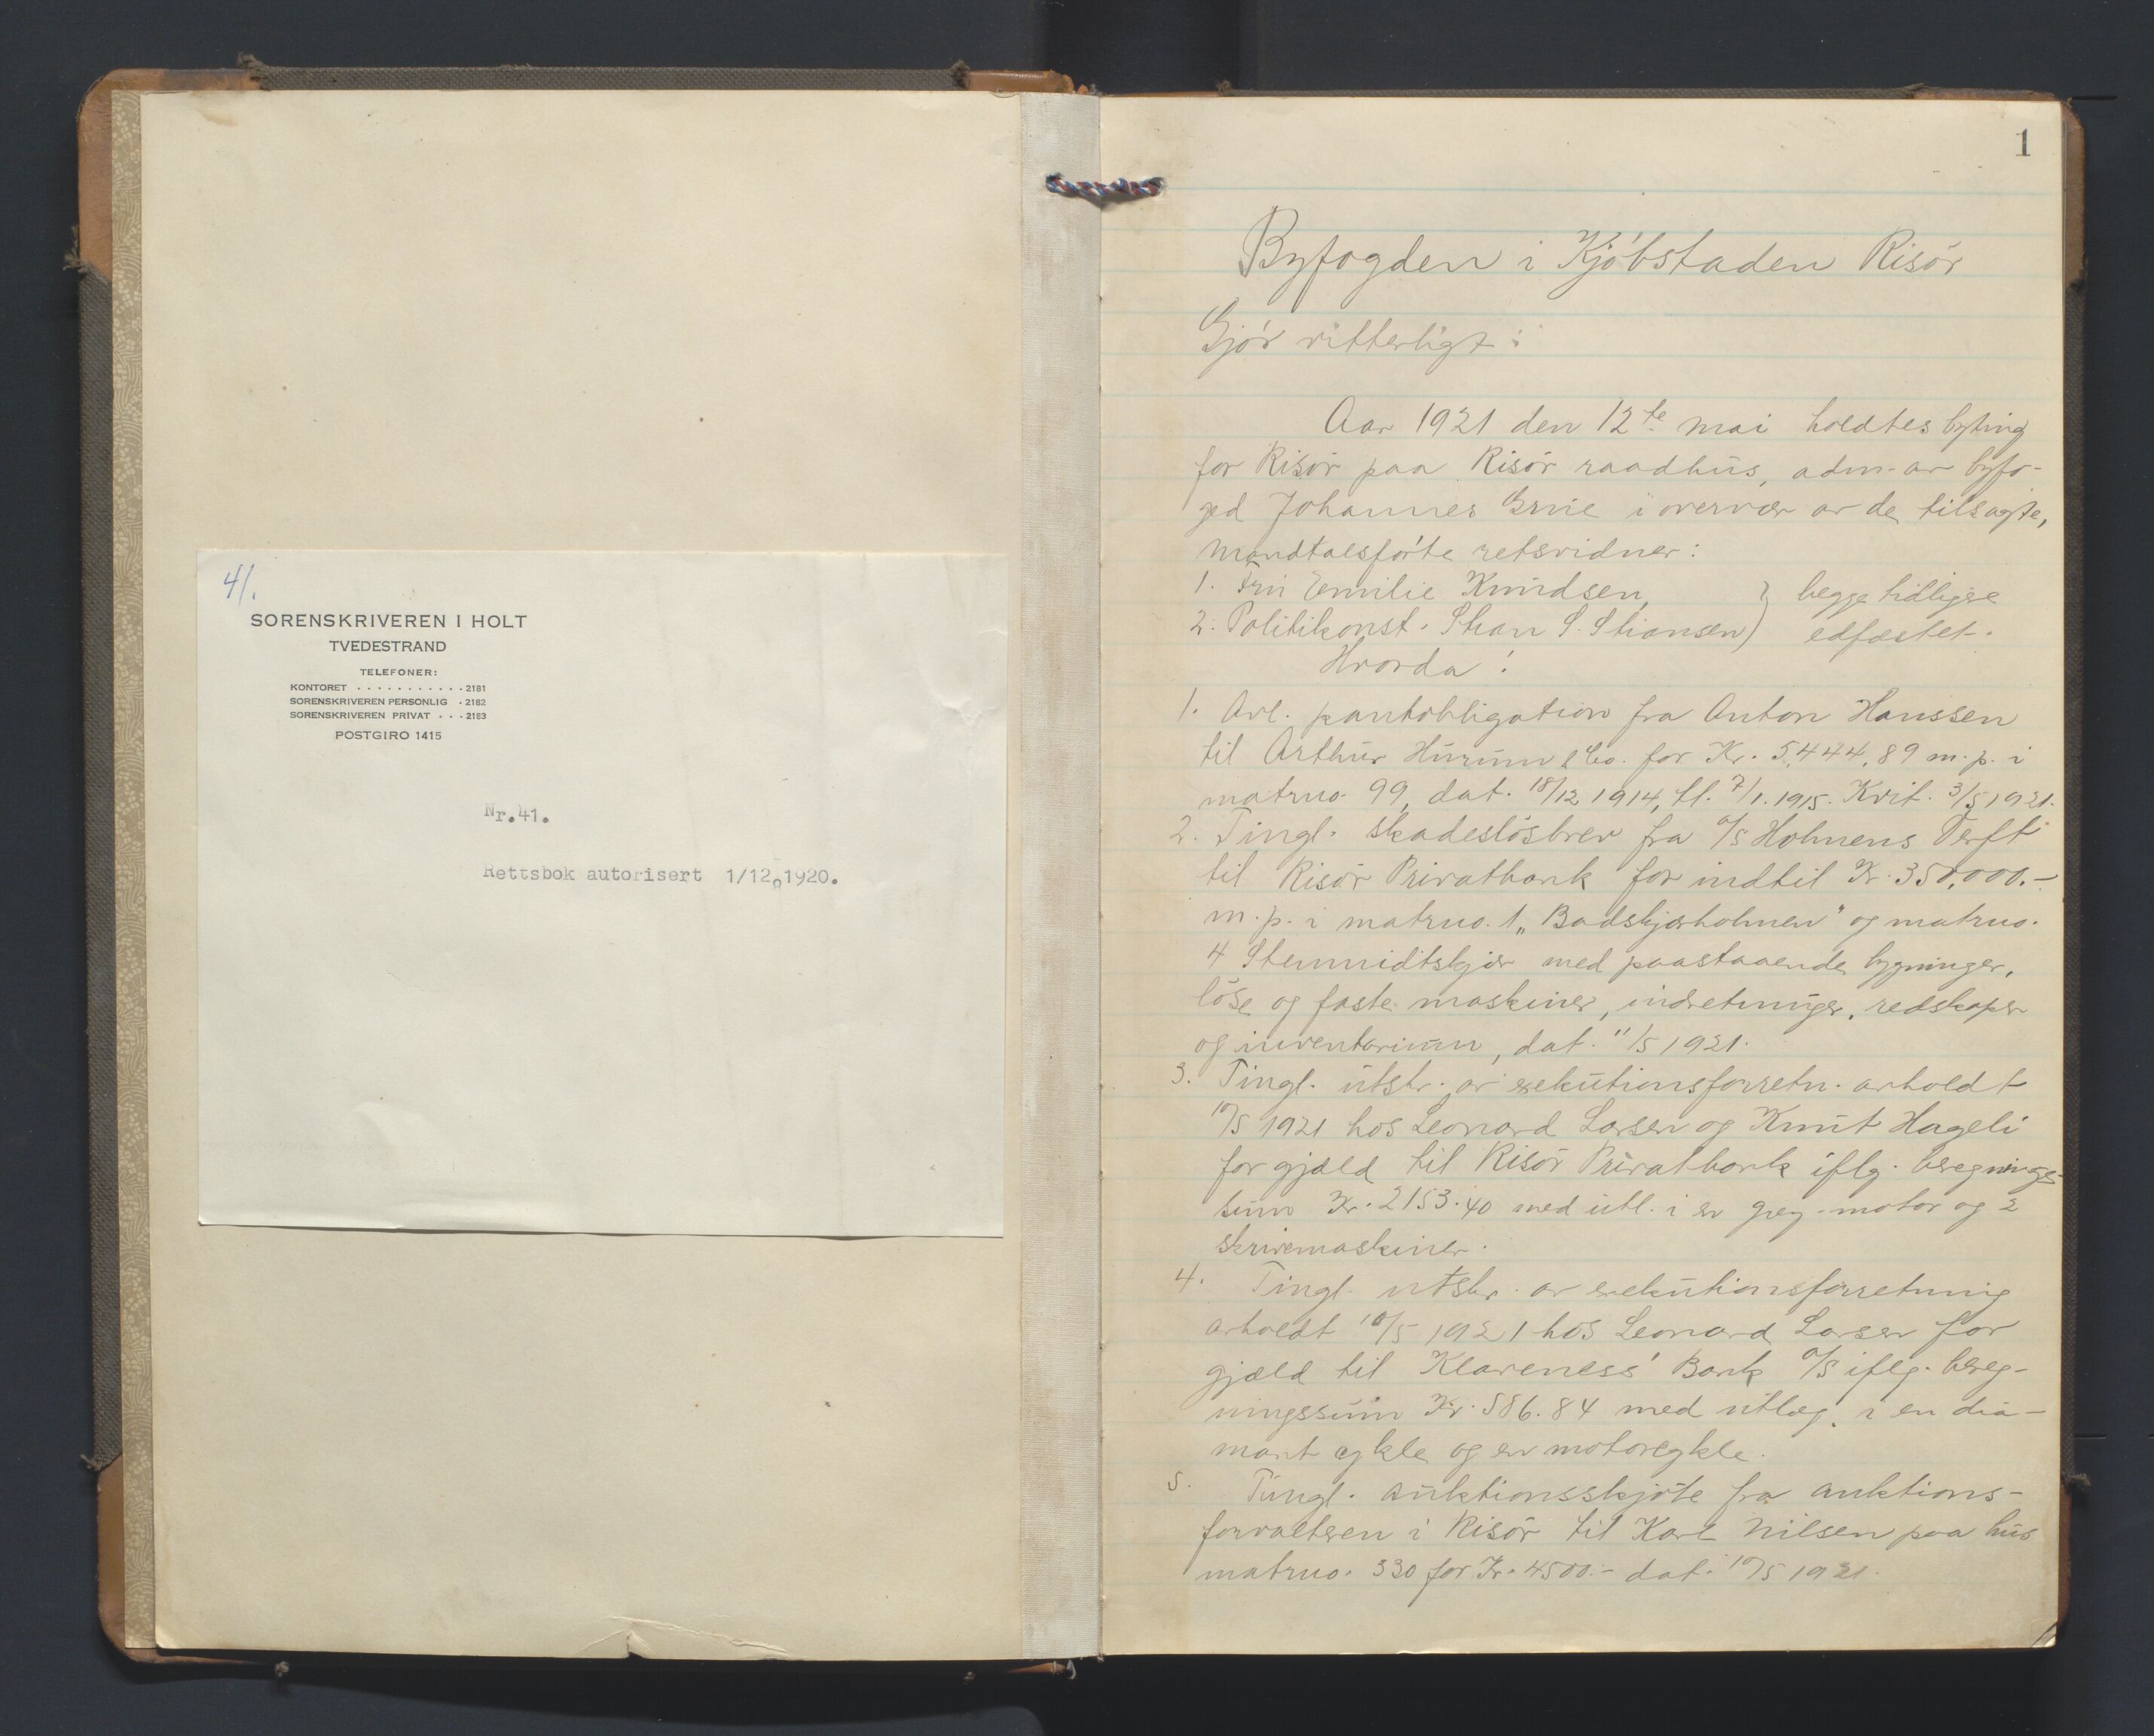 41.
SORENSKRIVEREN I HOLT
TVEDESTRAND
TELEFONER:
KONTORET . . . . . . . . . . . 2181
SORENSKRIVEREN PERSONLIG . 2182
SORENSKRIVEREN PRIVAT . . . 2183
POSTGIRO 1415
Nr.41.
Rettsbok autorisert 1/12 1920.
1
Byfogden i Kjöbstaden Risör
Gjör vitterligt:
Aar 1921 den 12te mai holdtes byting
for Risör paa Risör raadhus, adm. av byfo-
ged Johannes Grue i overvær av de tilsagte,
mandtalsförte retsvidner:
1. Fru Emilie Knudsen, } begge tidligere
2. Politikonst. Stian S. Stiansen } edfæstet.
Hvorda:
1. Avl. pantobligation fra Anton Hanssen
til Arthur Hurum & Co. for Kr. 5,444,89 m. p. i
matrno. 99, dat. 18/12 1914, tl. 7/1. 1915. Kvit. 3/5 1921.
2. Tingl. skadeslösbrev fra A/S Holmens Verft
til Risör Privatbank for indtil Kr. 350,000.-
m. p. i matrno. 1 „Badskjærholmen" og matrno.
4 Stemmidtskjær med paastaaende bygninger,
löse og faste maskiner, indretninger, redskaper
og inventarium, dat. 11/5 1921.
3. Tingl. utskr. av exekutionsforretn. avholdt
10/5 1921 hos Leonard Larsen og Knut Hageli
for gjæld til Risör Privatbank iflg. beregnings-
sum Kr. 2153.40 med utl. i en grey-motor og 2
skrivemaskiner.
4. Tingl. utskr. av exekutionsforretning
avholdt 10/5 1921 hos Leonard Larsen for
gjæld til Klareness' Bank A/S iflg. bereg-
ningssum Kr. 586.84 med utlæg i en dia-
mant cykle og en motorcykle.
5. Tingl. auktionsskjöte fra auktions-
forvalteren i Risör til Karl Nilsen paa hus
matrno. 330 for Kr. 4500.- dat. 10/5 1921.